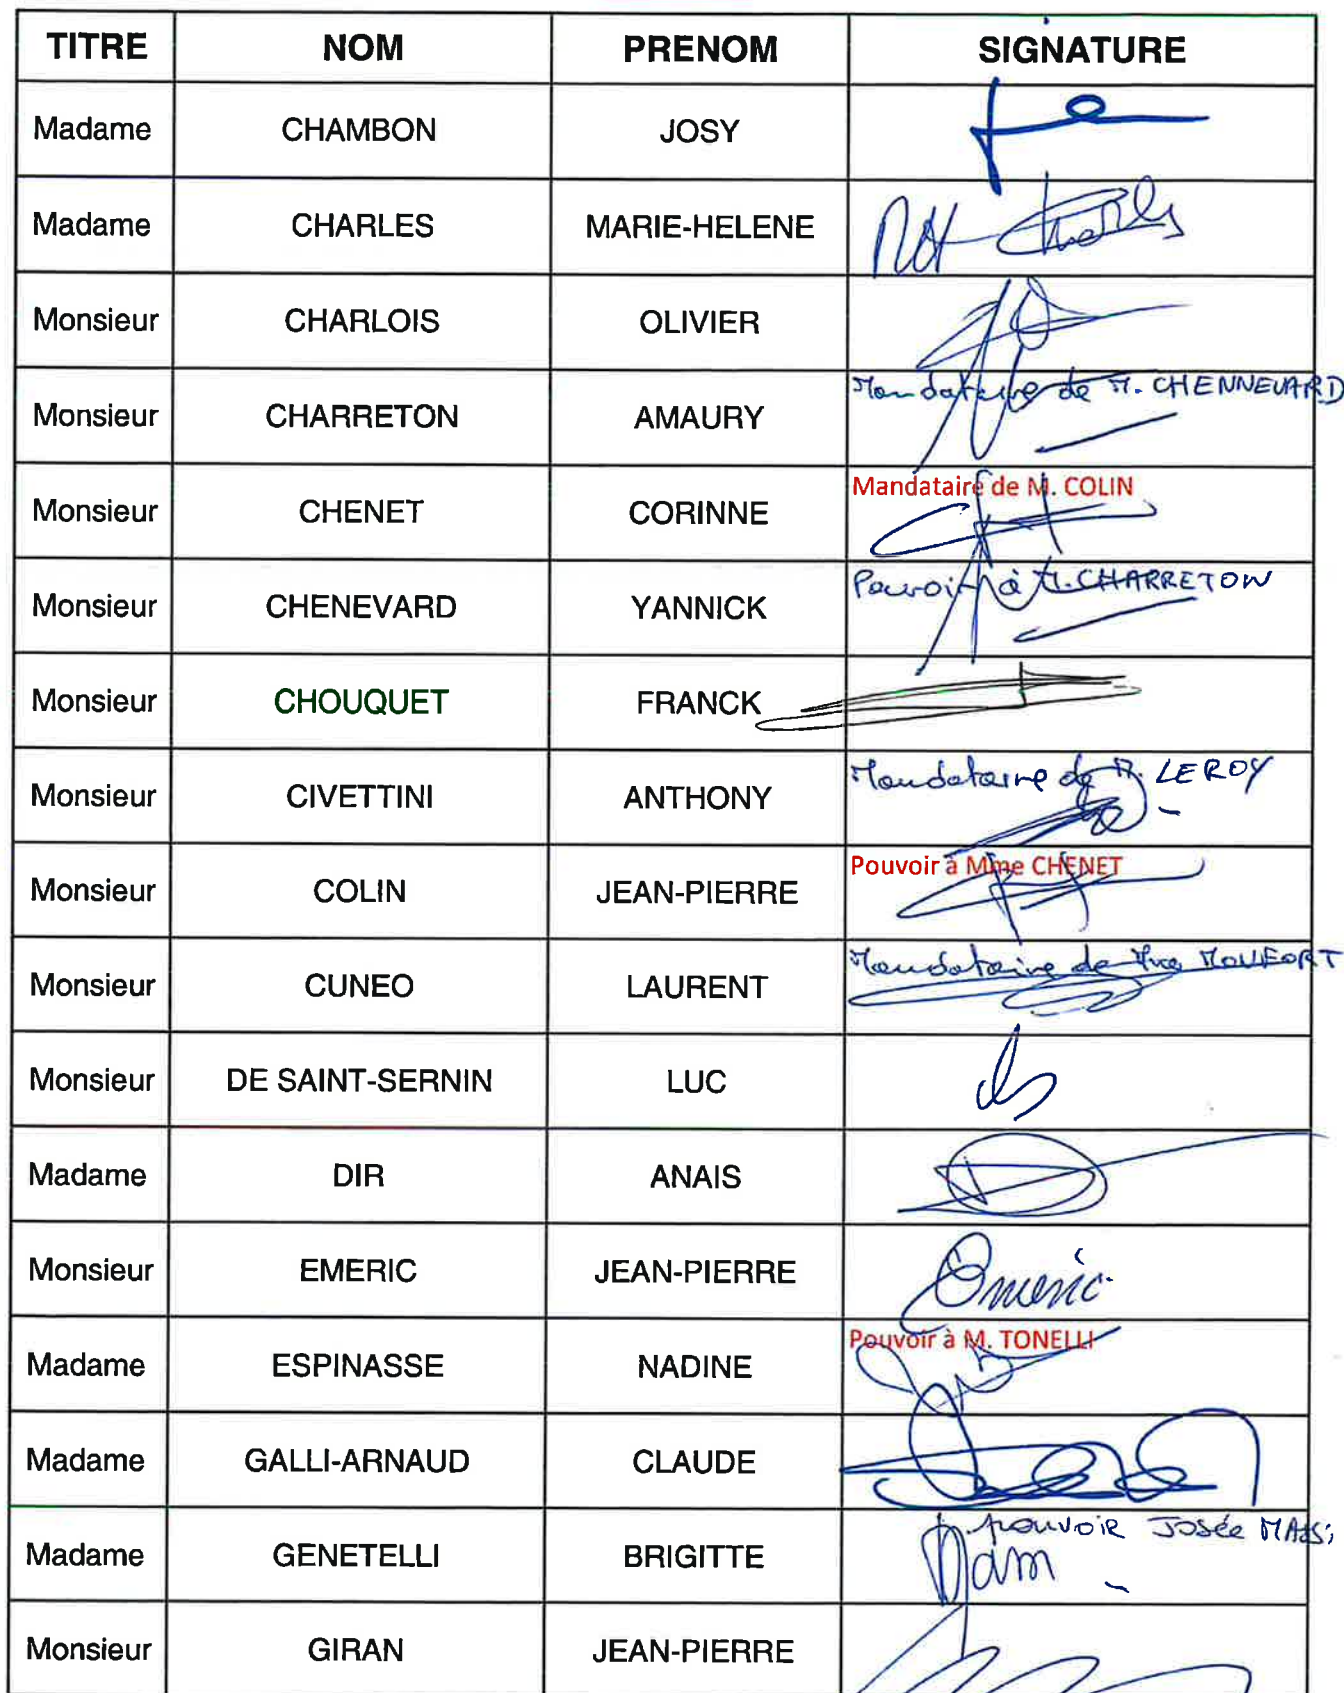 TITRE NOM PRENOM SIGNATURE
Madame CHAMBON JOSY
Madame CHARLES MARIE-HELENE MH Charles
Monsieur CHARLOIS OLIVIER
Monsieur CHARRETON AMAURY Mandataire de M. CHENNEVARD
Monsieur CHENET CORINNE Mandataire de M. COLIN
Monsieur CHENEVARD YANNICK Pouvoir à M. CHARRETON
Monsieur CHOUQUET FRANCK
Monsieur CIVETTINI ANTHONY Mandataire de M. LEROY
Monsieur COLIN JEAN-PIERRE Pouvoir à Mme CHENET
Monsieur CUNEO LAURENT Mandataire de Mme
Monsieur DE SAINT-SERNIN LUC
Madame DIR ANAIS
Monsieur EMERIC JEAN-PIERRE Emeric
Madame ESPINASSE NADINE Pouvoir à M. TONELLI
Madame GALLI-ARNAUD CLAUDE
Madame GENETELLI BRIGITTE pouvoir Josée
Monsieur GIRAN JEAN-PIERRE